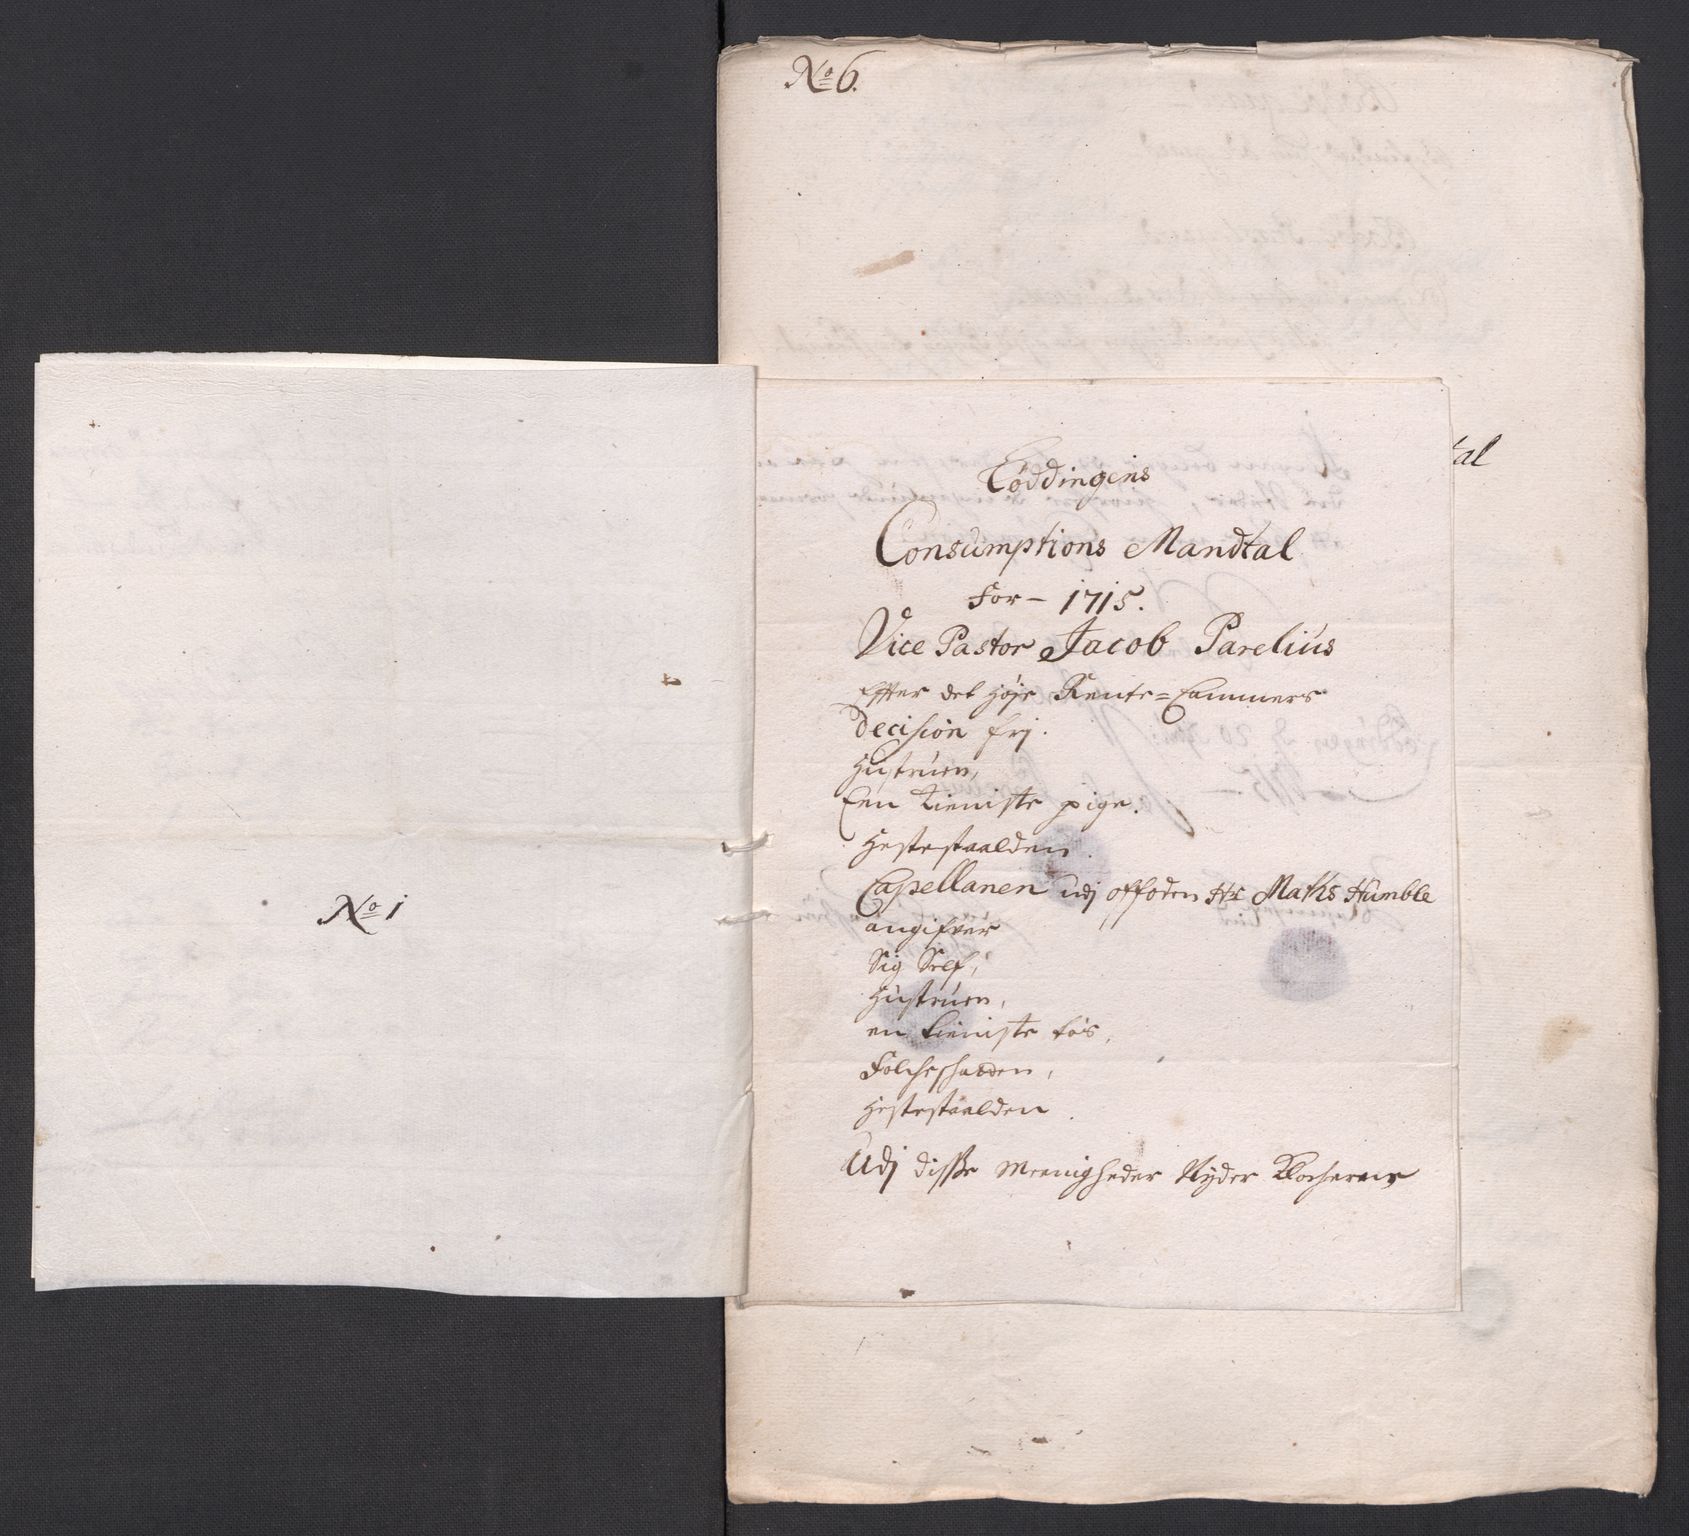 No 6.
tal
No 1
Løddingens
Consumptions Mandtal
For - 1715.
Vice Pastor Jacob Parelius
Effter det høje Rente=Cammers
Decision frj.
Hustruen,
Een tieniste pige.
Hestestaalden.
Capellanen udj offoden Hr Mathis Humble
angifver
Sig Self,
Hustruen,
en tieniste tøs,
Folcheschatten,
Hestestaalden.
Udj disse Meenigheder Nyder Klocherne